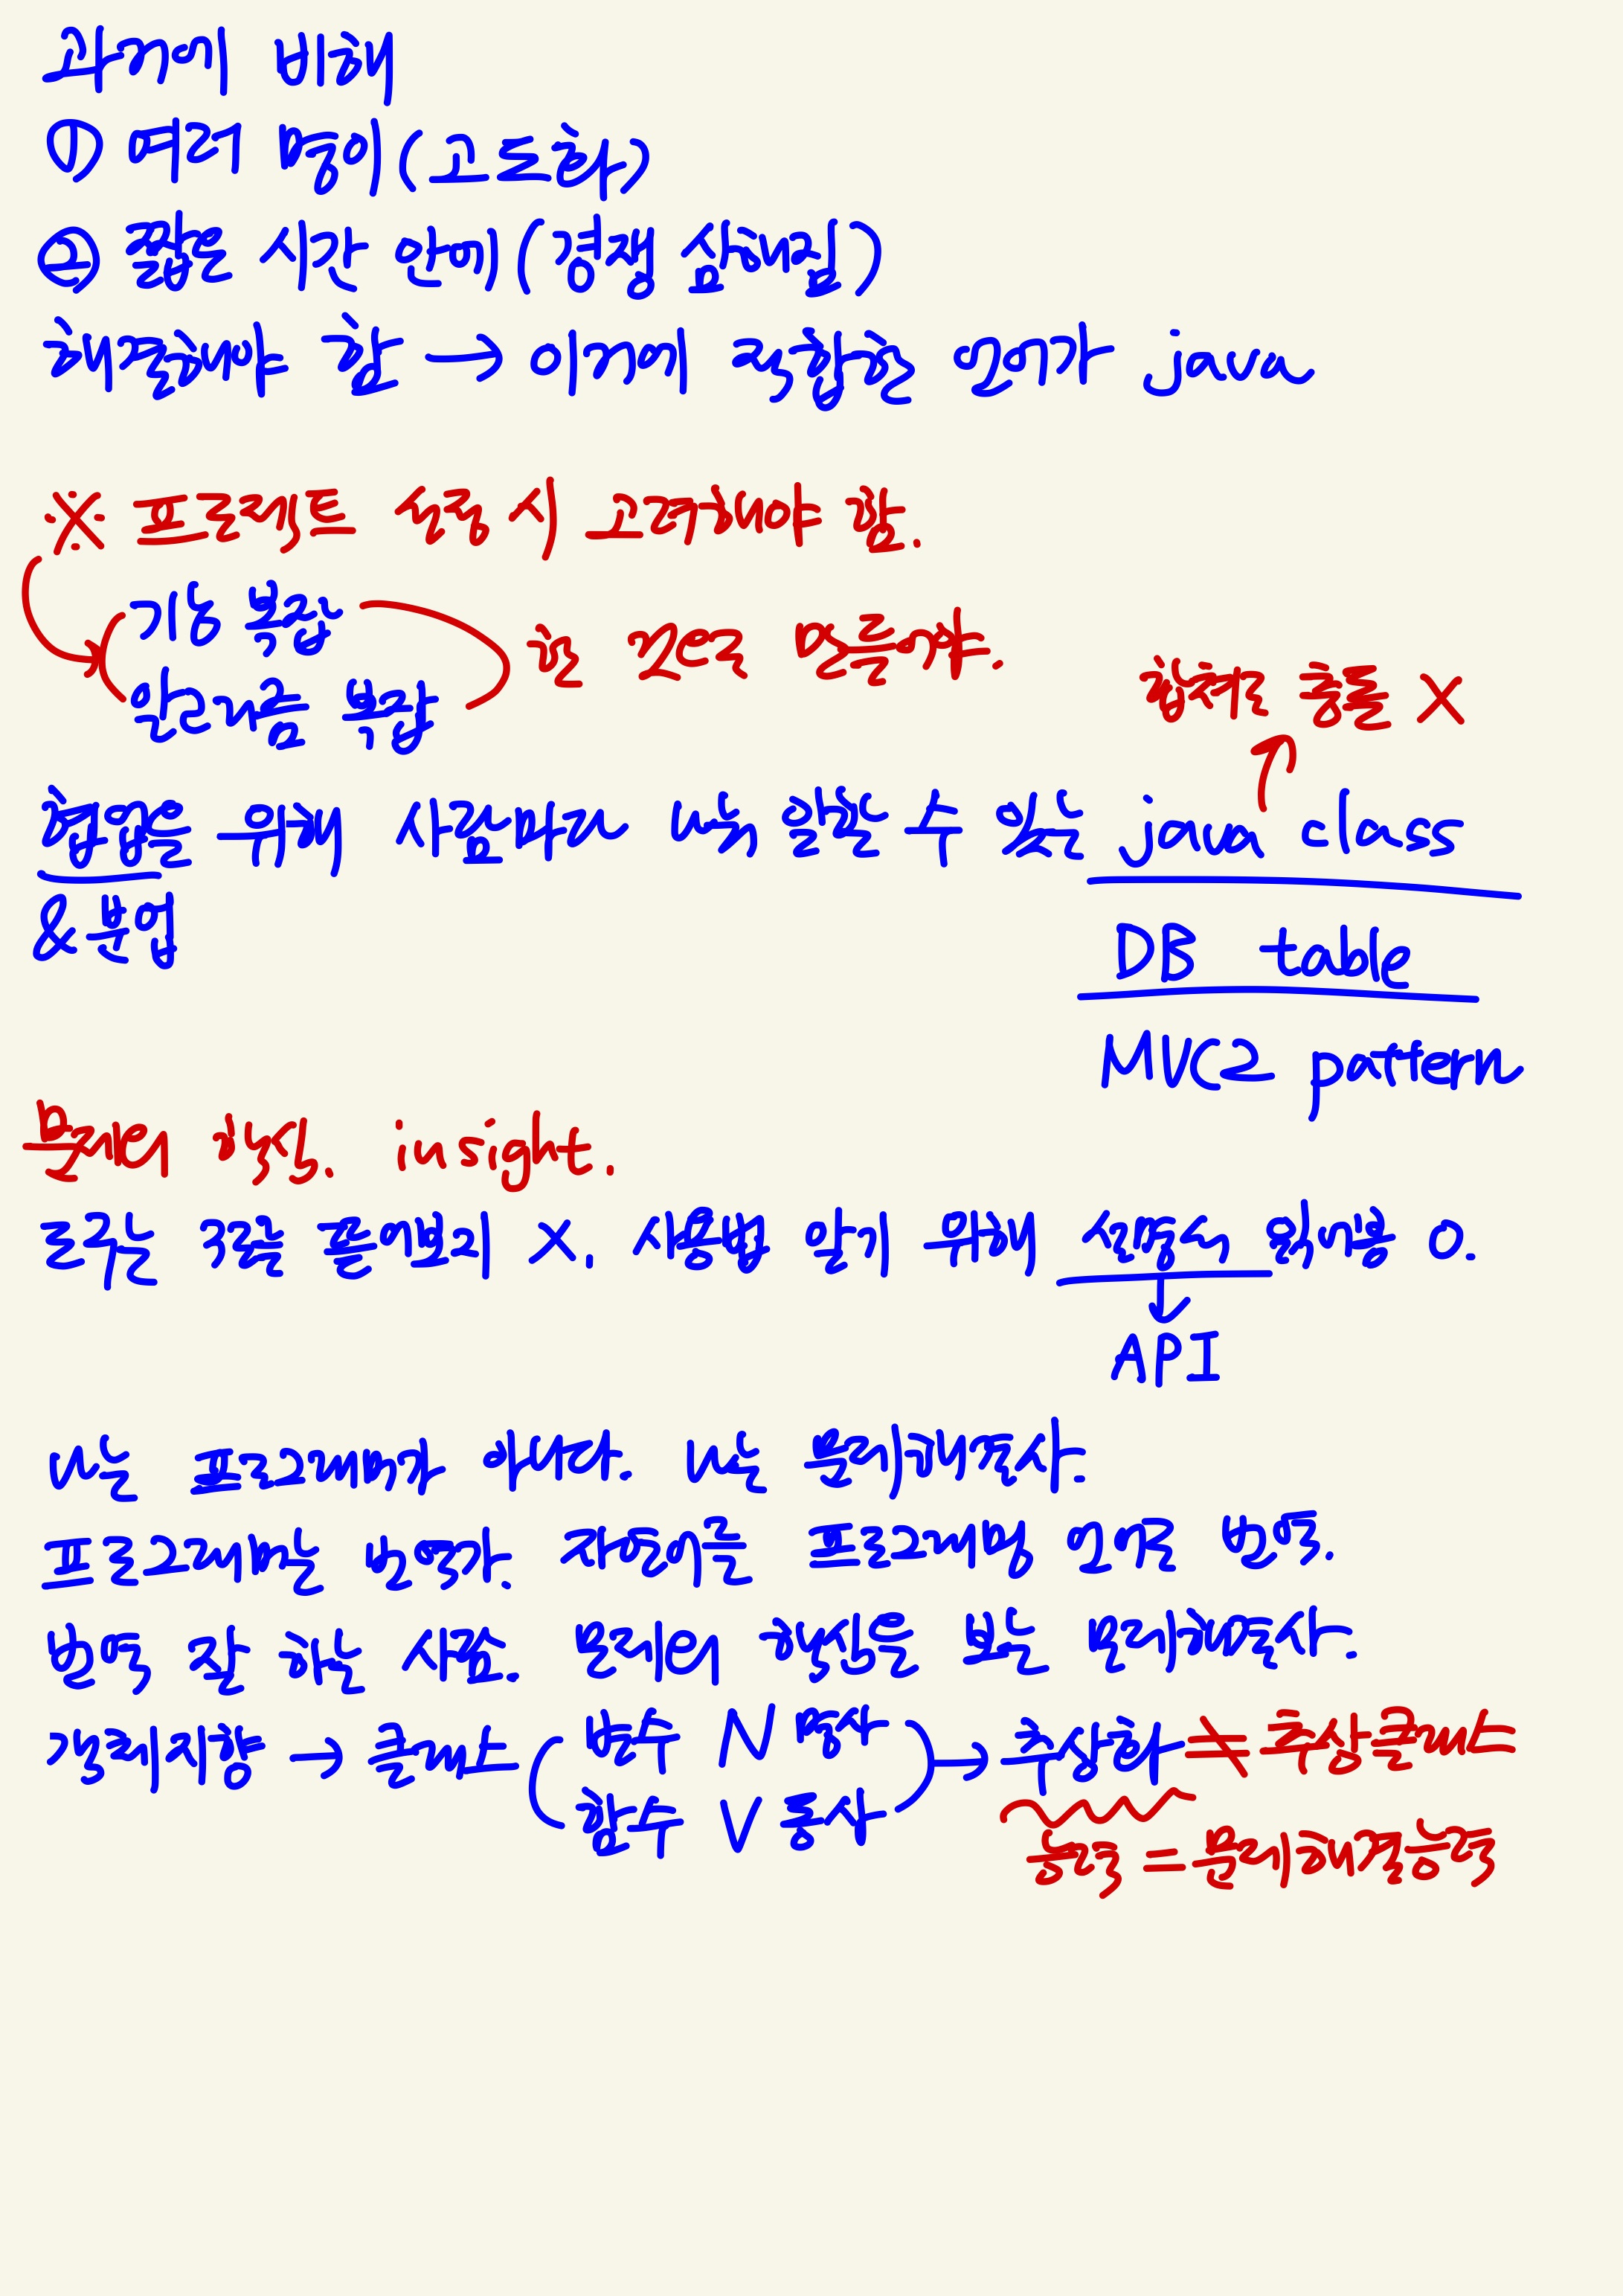 과거에 비해
① 여러 명이(고도화)
② 짧은 시간 안에(경쟁 심해짐)
해결해야 함 → 이거에 적합한 언어가 java
※ 프로젝트 설정 시 고려해야 함.
기능 복잡
알고리즘 복잡
한 것으로 만들어야.
합쳐도 충돌 X
협업을 위해 사람마다 나눠 일할 수 있는 java class
& 분업
DB table
MVC2 pattern
문제의 핵심. insight.
도구는 코드 뜯어보기 X. 사용법 알기 위해 설명서 읽기용 O.
API
나는 프로그래머가 아니다. 나는 문제해결사.
프로그래머는 번역가. 자연어를 프로그래밍 언어로 번역.
번역 잘 하는 사람. 문제의 핵심을 보는 문제해결사.
객체지향 → 클래스 ( 변수 N 명사
함수 V 동사 ) → 추상화 ≠ 추상클래스
능력 = 문제해결능력